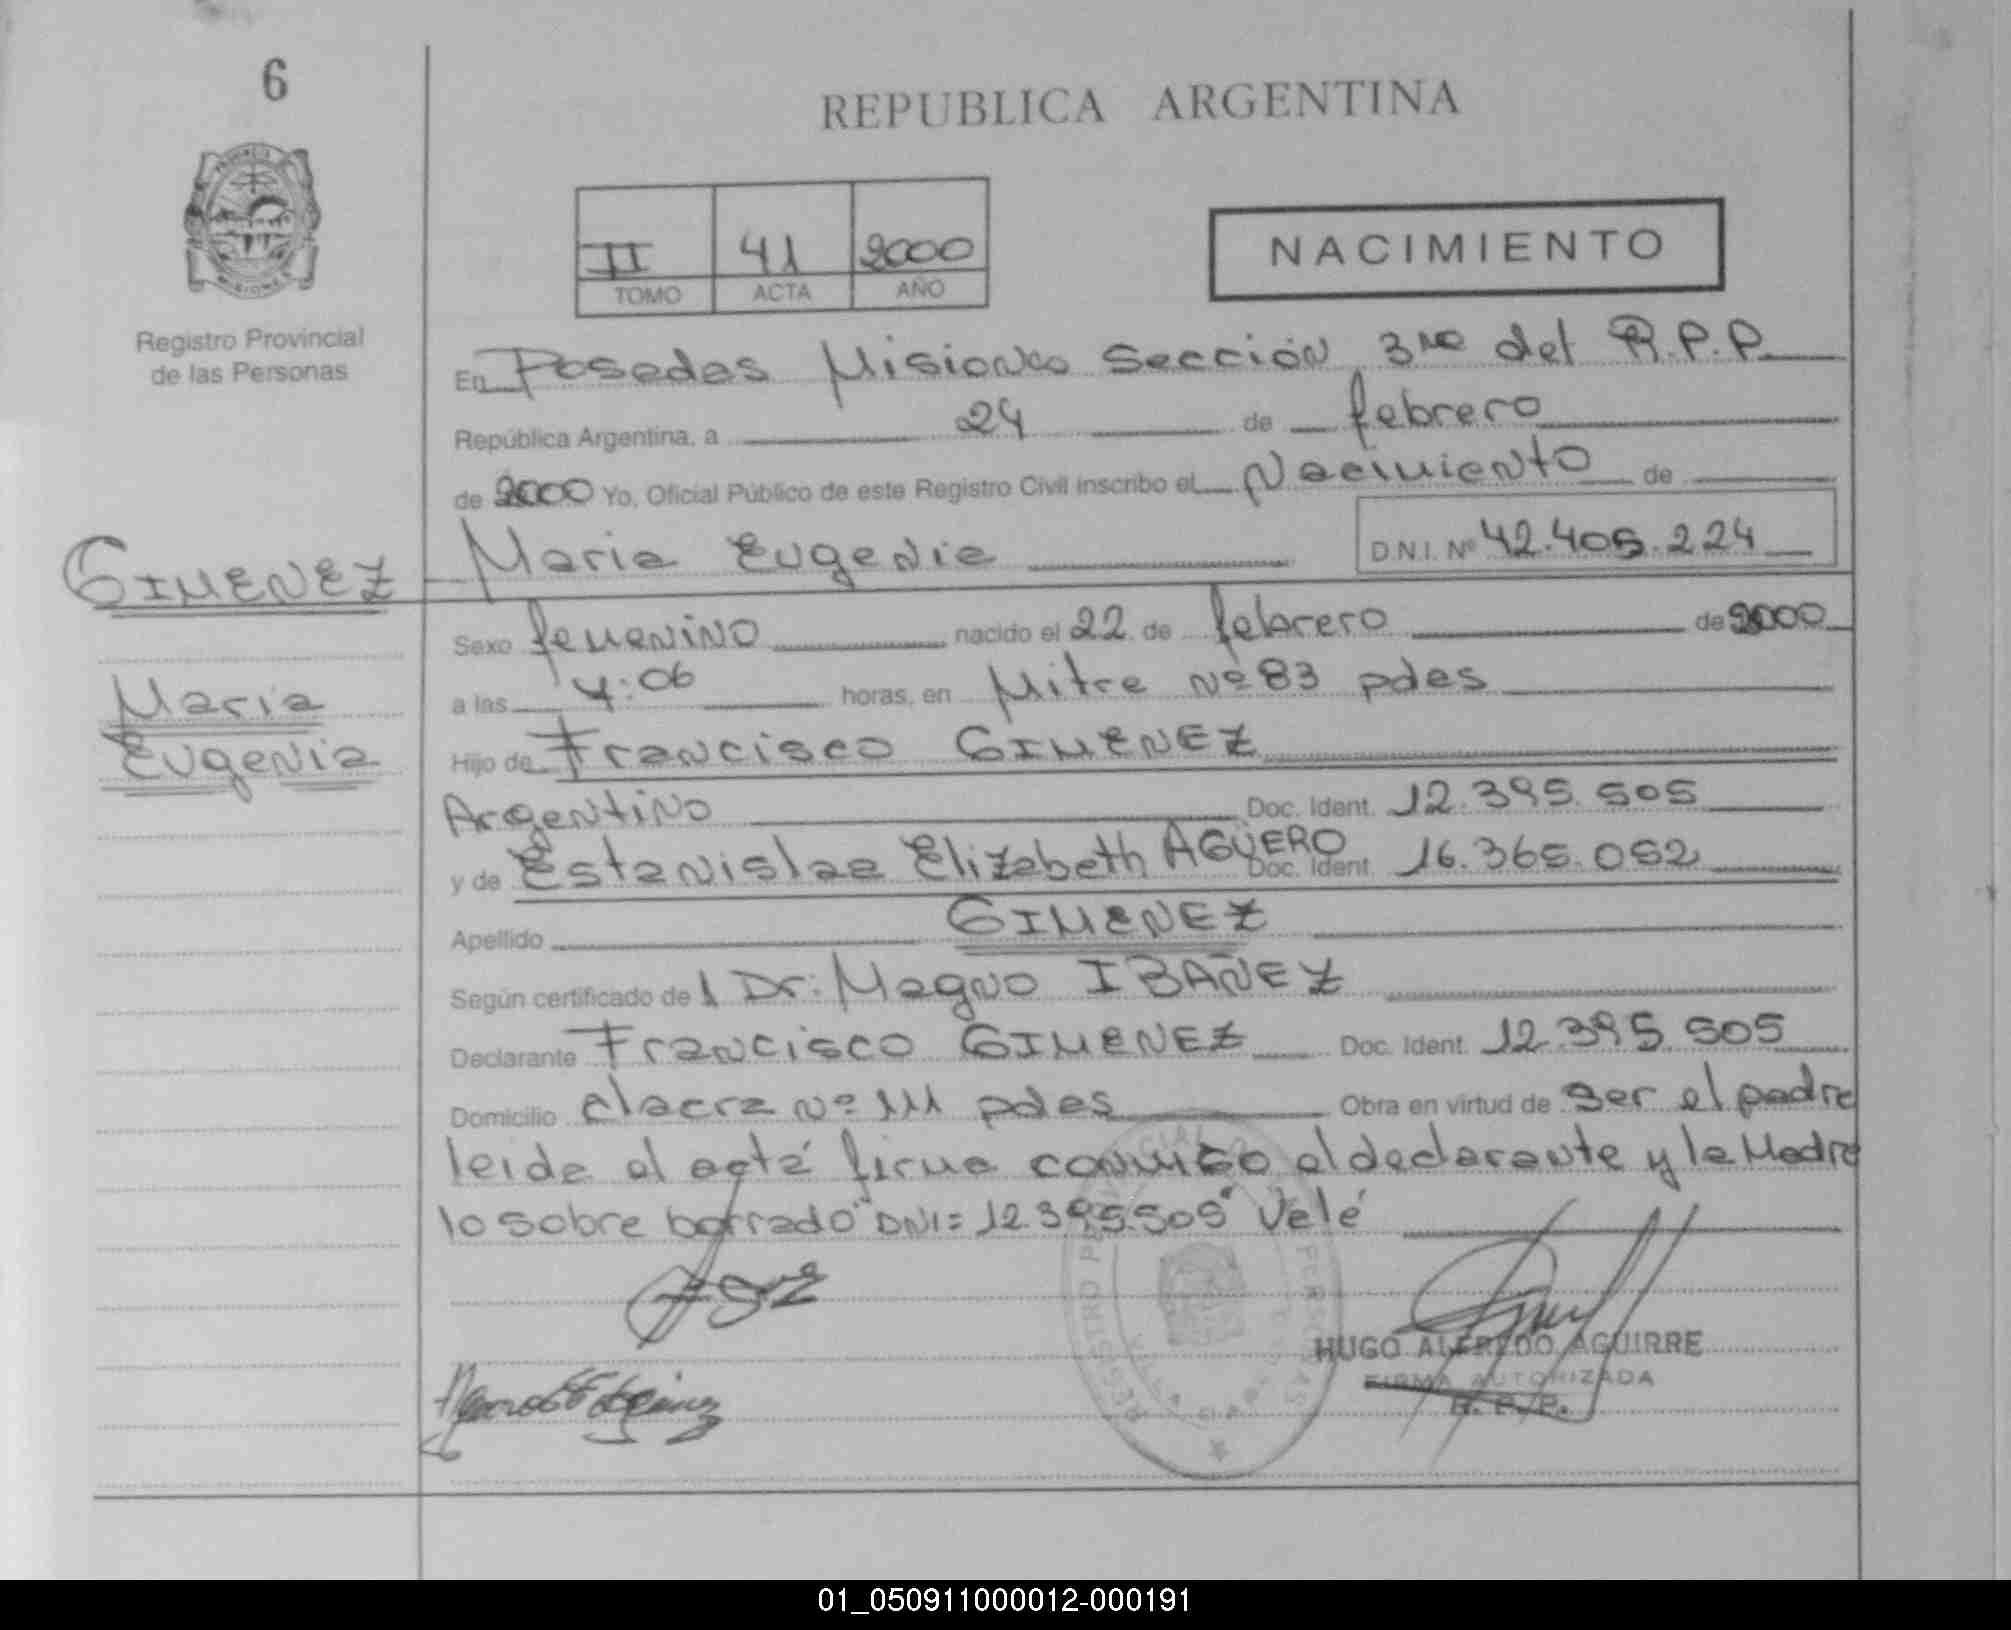 6
REPUBLICA ARGENTINA
PROVINCIA
MISIONES
Registro Provincial
de las Personas
II 41 2000
TOMO ACTA AÑO
NACIMIENTO
En Posadas Misiones Sección 3ra del R.P.P.
República Argentina, a 24 de febrero
de 2000 Yo, Oficial Público de este Registro Civil inscribo el Nacimiento de
GIMENEZ
Maria Eugenia D.N.I. Nº 42.405.224
Sexo femenino nacido el 22 de febrero de 2000
Maria
Eugenia
a las 4:06 horas, en Mitre Nº 83 pdas
Hijo de Francisco GIMENEZ
Argentino Doc. Ident. 12.395.505
y de Estanislaa Elizabeth AGÜERO Doc. Ident. 16.365.052
Apellido GIMENEZ
Según certificado de l Dr: Magno IBAÑEZ
Declarante Francisco GIMENEZ Doc. Ident. 12.395.505
Domicilio chacra Nº 111 pdas Obra en virtud de ser el padre
leida el acta firma conmigo el declarante y la Madre
lo sobre borrado "DNI= 12.395.505" Vale
HUGO ALFREDO AGUIRRE
FIRMA AUTORIZADA
R. P. P.
01_050911000012-000191